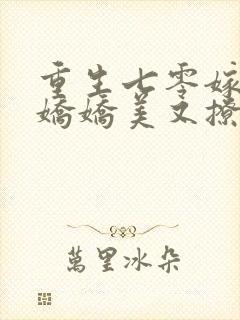 重生七零嫁
嬌嬌美又撩
萬里冰朵